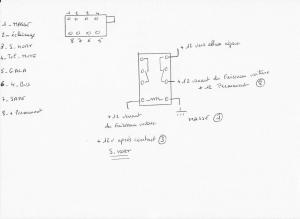 1 2 3 4
8 7 6 5
1 - MASSE
2 - éclairage
3 - S. NOIR
4 - Tel - MUTE
5 - GALA
6 - 4 - Bus
7 - SAFE
8 - + Permanent
+ 12 vers allume cigare
+ 12 venant du faisceau voiture
+ 12 Permanent (8)
MASSE (1)
+ 12 venant
du faisceau voiture
+ 12v après contact (3)
S. NOIR